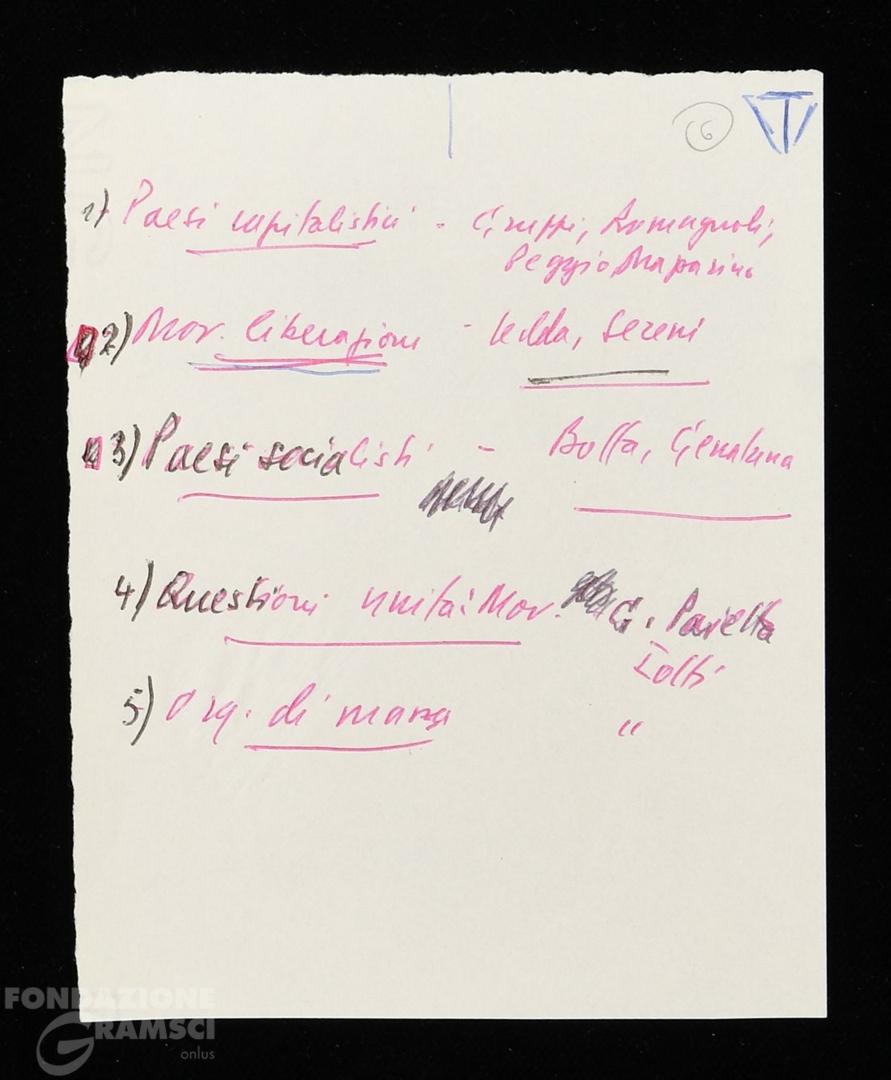 6
1) Paesi capitalistici - Gruppi, Romagnoli,
Peggio,
2) Mov. liberazione - Ledda, Sereni
3) Paesi socialisti - Boffa,
4) Questioni unità: Mov. G. Pajetta
Iotti
5) Org. di massa "
FONDAZIONE
GRAMSCI
onlus